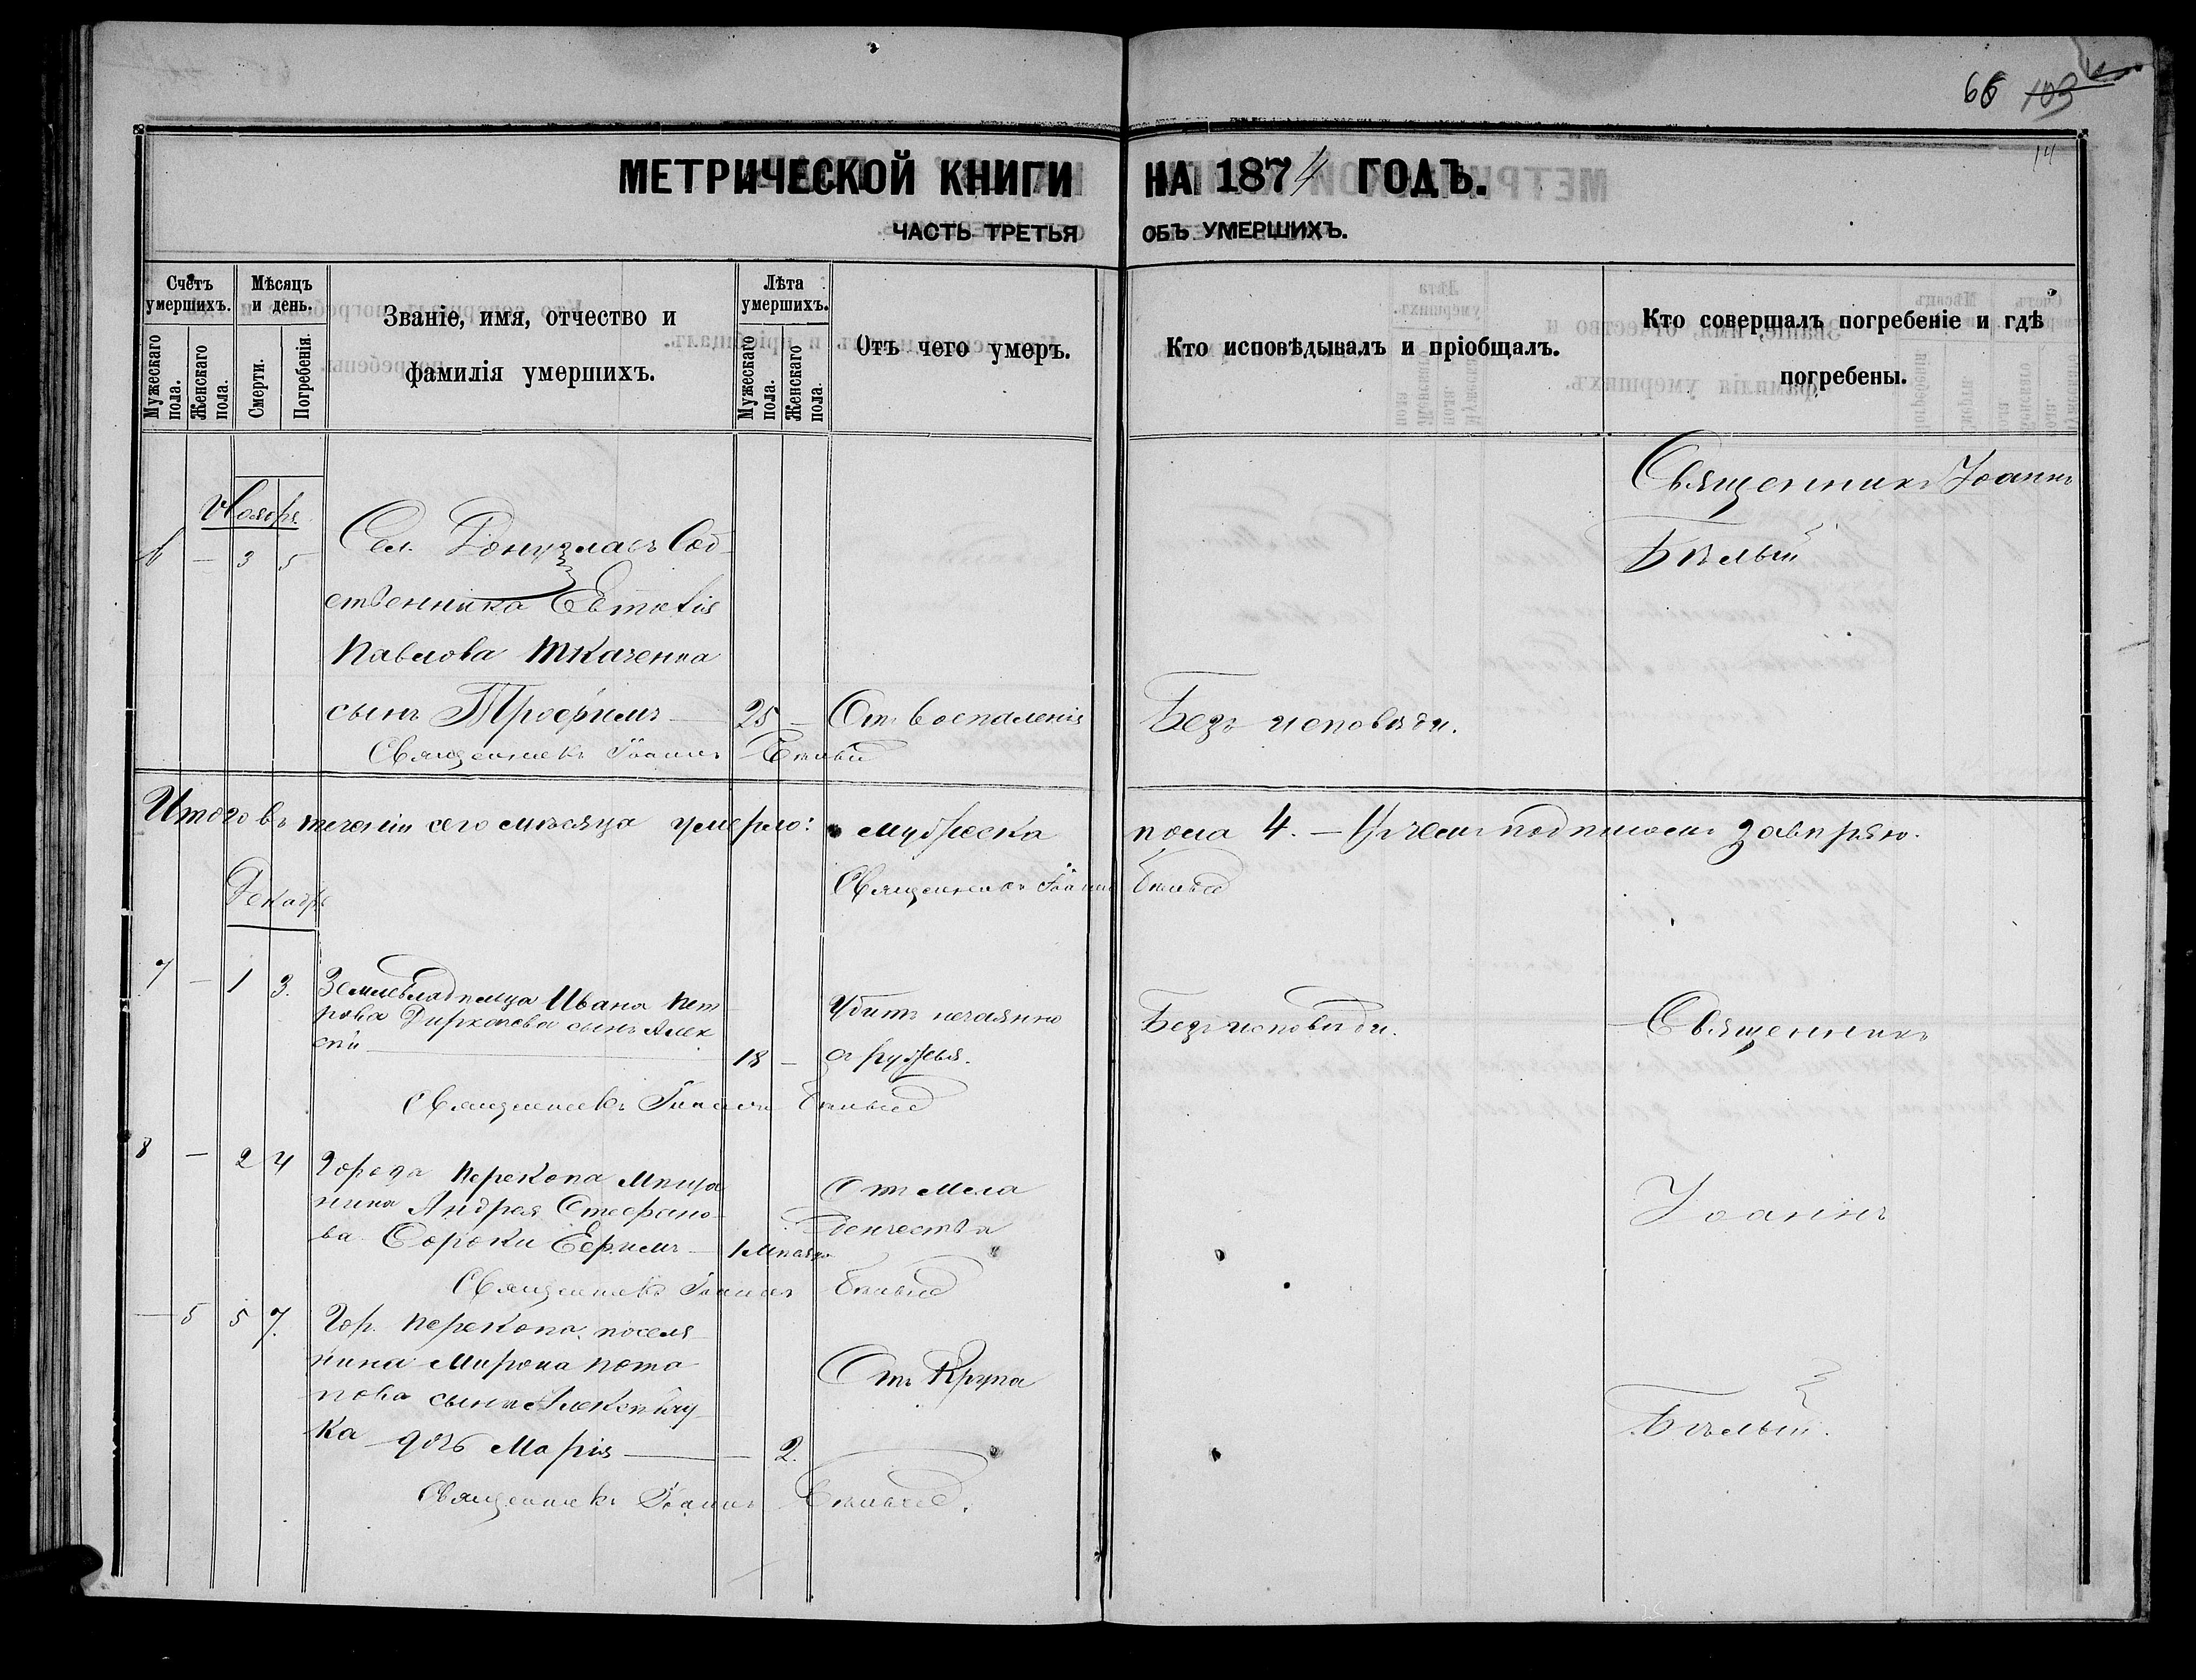 66 103
14
МЕТРИЧЕСКОЙ КНИГИ НА 1874 ГОДЪ.
ЧАСТЬ ТРЕТЬЯ ОБЪ УМЕРШИХЪ.
Счетъ умершихъ.
Мужескаго пола.
Женскаго пола.
Мѣсяцъ и день.
Смерти.
Погребенія.
Званіе, имя, отчество и
фамилія умершихъ.
Лѣта умершихъ.
Мужескаго пола.
Женскаго пола.
Отъ чего умеръ.
Кто исповѣдывалъ и пріобщалъ.
Кто совершалъ погребеніе и гдѣ
погребены.
Ноябрь
6 — 3 5 Сел. Донузлавъ Соб-
ственника Евтихія
Павлова Ткаченка
сынъ Трофимъ — 25 — Отъ воспаленія Безъ исповѣди.
Священникъ Іоаннъ
Бѣлый
Священникъ Іоаннъ Бѣлый
Итого въ теченіи сего мѣсяца умерло: мужеска пола 4. — Въ чемъ подписомъ завѣряю.
Священникъ Іоаннъ Бѣлый
Декабрь
7 — 1 3. Землевладѣльца Ивана Пет-
рова сынъ Алек
сѣй — 18 — Убитъ нечаянно
съ ружья. Безъ исповѣди. Священникъ
Священникъ Іоаннъ Бѣлый
8 — 2 4 Города Перекопа мѣща
нина Андрея Стефано-
ва Сороки Ефимъ — 1 мѣсяцъ Отъ мла
денчества Іоаннъ
Священникъ Іоаннъ Бѣлый
— 5 5 7. Гор. Перекопа поселя
нина Мирона Пота
пова сына
ка дочь Марія — — 2. Отъ Крупа Бѣлый.
Священникъ Іоаннъ Бѣлый.